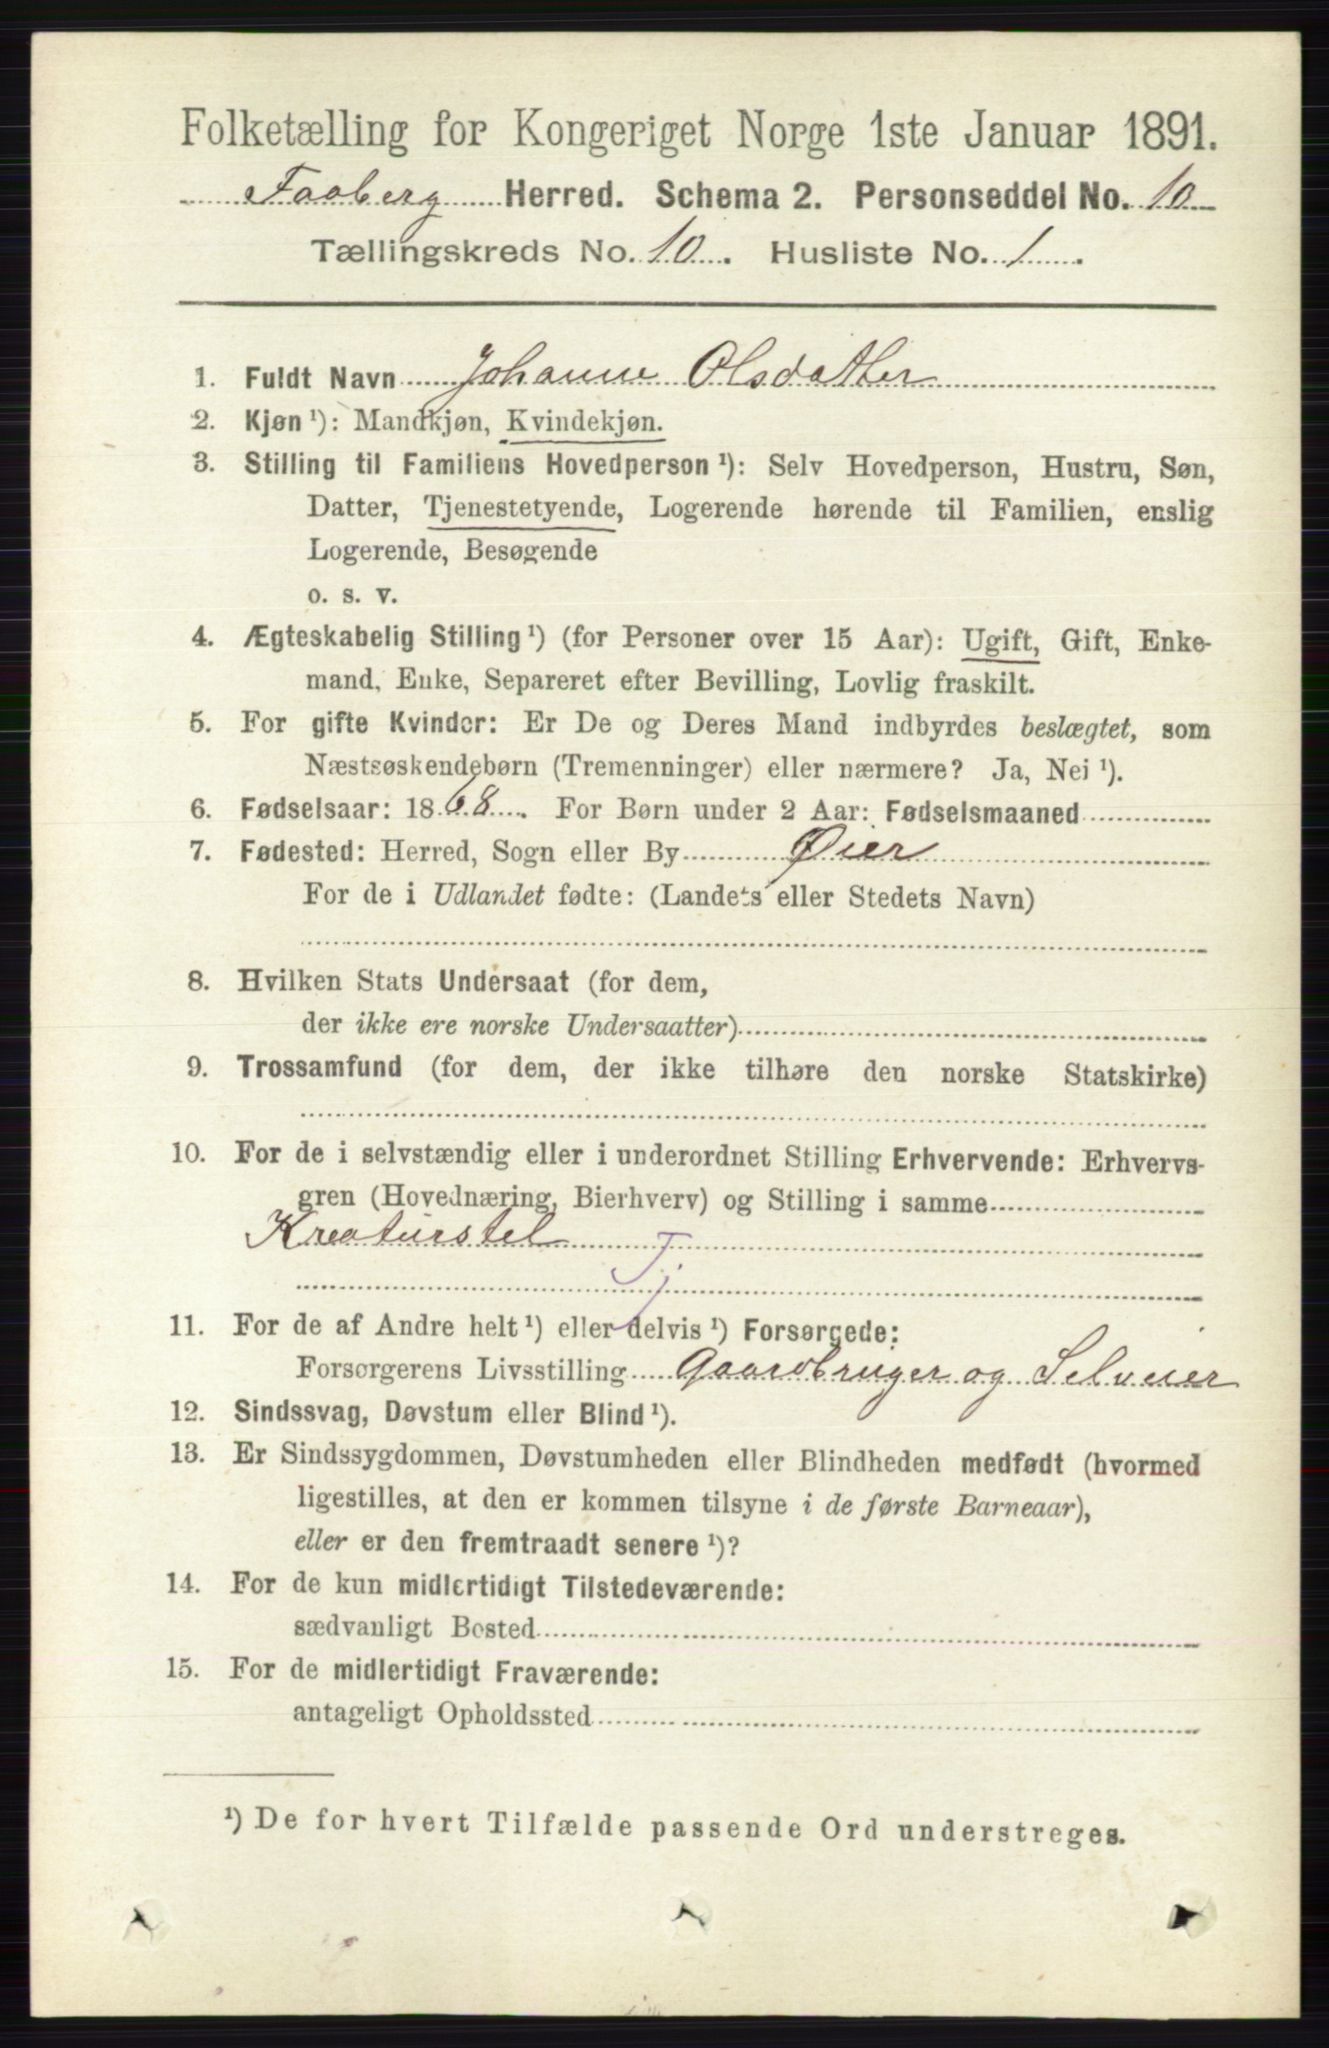 Folketælling for Kongeriget Norge 1ste Januar 1891.
Faaberg Herred. Schema 2. Personseddel No. 10
Tællingskreds No. 10. Husliste No. 1.
1. Fuldt Navn Johanne Olsdatter
2. Kjøn¹): Mandkjøn, Kvindekjøn.
3. Stilling til Familiens Hovedperson¹): Selv Hovedperson, Hustru, Søn,
Datter, Tjenestetyende, Logerende hørende til Familien, enslig
Logerende, Besøgende
o. s. v.
4. Ægteskabelig Stilling¹) (for Personer over 15 Aar): Ugift, Gift, Enke-
mand, Enke, Separeret efter Bevilling, Lovlig fraskilt.
5. For gifte Kvinder: Er De og Deres Mand indbyrdes beslægtet, som
Næstsøskendebørn (Tremenninger) eller nærmere? Ja, Nei¹).
6. Fødselsaar: 1868. For Børn under 2 Aar: Fødselsmaaned
7. Fødested: Herred, Sogn eller By Øier
For de i Udlandet fødte: (Landets eller Stedets Navn)
8. Hvilken Stats Undersaat (for dem,
der ikke ere norske Undersaatter)
9. Trossamfund (for dem, der ikke tilhøre den norske Statskirke)
10. For de i selvstændig eller i underordnet Stilling Erhvervende: Erhvervs-
gren (Hovednæring, Bierhverv) og Stilling i samme
Kreaturstel
Tj
11. For de af Andre helt¹) eller delvis¹) Forsørgede:
Forsørgerens Livsstilling Gaardbruger og Selveier
12. Sindssvag, Døvstum eller Blind¹).
13. Er Sindssygdommen, Døvstumheden eller Blindheden medfødt (hvormed
ligestilles, at den er kommen tilsyne i de første Barneaar),
eller er den fremtraadt senere¹)?
14. For de kun midlertidigt Tilstedeværende:
sædvanligt Bosted
15. For de midlertidigt Fraværende:
antageligt Opholdssted
¹) De for hvert Tilfælde passende Ord understreges.